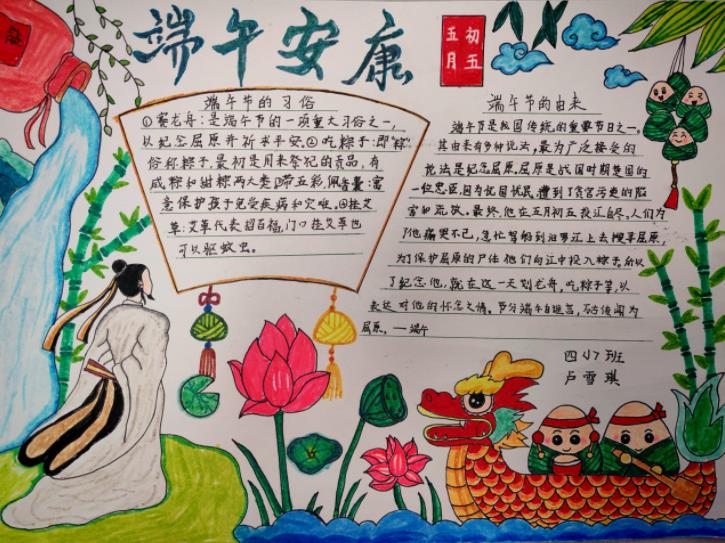 端午安康
五月
初五
端午节的习俗
①赛龙舟：是端午节的一项重大习俗之一，
以纪念屈原并祈求平安。②吃粽子：即"粽
俗称粽子，最初是用来祭祀的贡品，有
咸粽和甜粽两大类③带五彩，佩香囊：寓
意保护孩子免受疾病和灾难。④挂艾
草：艾草代表招百福，门口挂艾草也
可以驱蚊虫。
端午节的由来
端午节是我国传统的重要节日之一。
其由来有多种说法，最为广泛接受的
说法是纪念屈原。屈原是战国时期楚国的
一位忠臣，因为忧国忧民，遭到了贪官污吏的陷
害和流放。最终，他在五月初五投江自尽。人们为
了他痛哭不已，急忙驾船到汨罗江上去搜寻屈原，
为了保护屈原的尸体他们向江中投入粽子。所以
了纪念他，就在这一天划龙舟，吃粽子等，以
表达对他的怀念之情。节分端午自谁言，万古传闻为
屈原。——端午
四小7班
卢雪琪